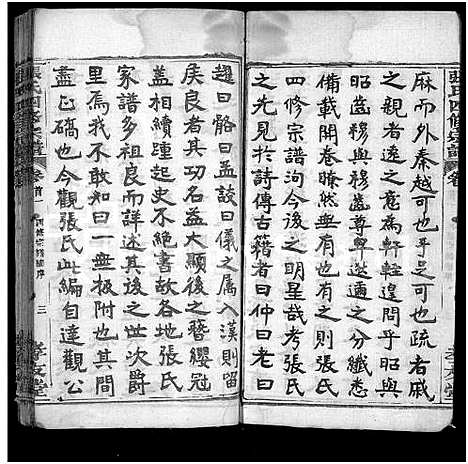 張氏四修宗譜
麻而外秦越可也乎足可也疏者戚
之親者遠之竟為軒輊遑問乎昭與
昭齒穆與穆齒尊卑遞適之分纖悉
備載開卷瞭然無有也可則張氏
宗譜洵今後之明星哉考張氏
之先見於詩傳古籍者曰仲曰老曰
孝友堂
趯曰骼曰孟談曰儀之属入漢則留
矦良者其功名益大顯後之簪纓冠
盖相續踵起史不絕書故各地張氏
家譜多祖其系以序其後之世次爵
里焉我獨不然一無扳附也其間
盡正确也今觀張氏此編自達觀公
張氏四修宗譜
卷首一
四修宗譜編序
三
孝友堂